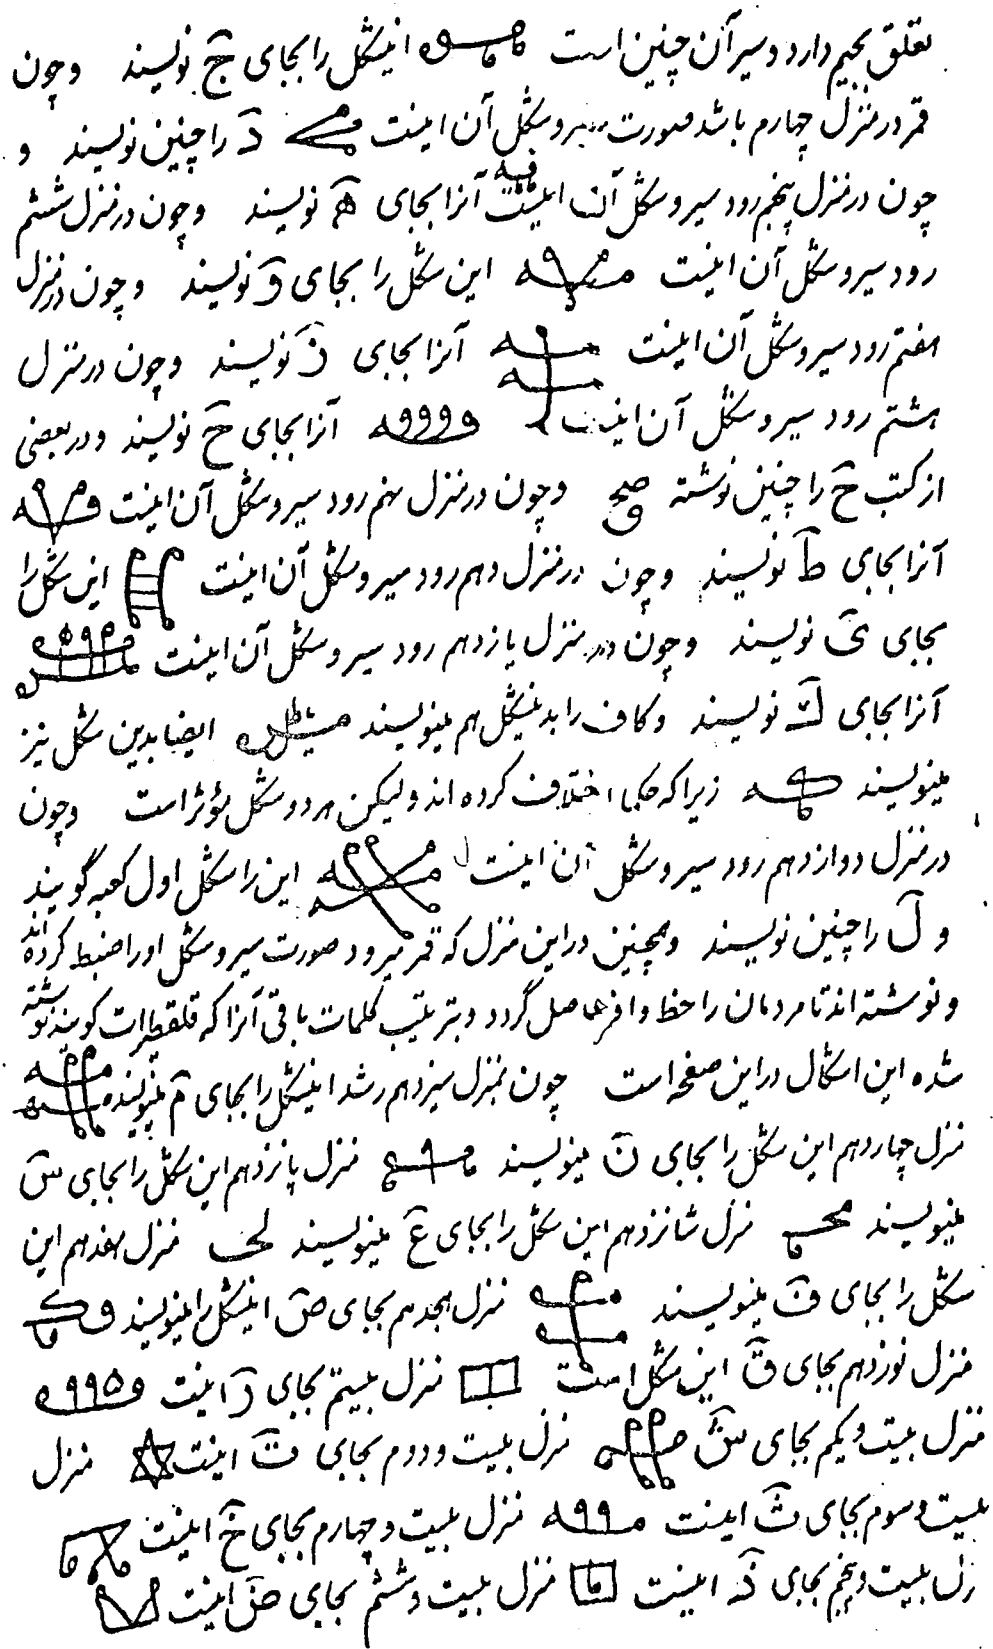 تعلق بجیم دارد و سیر آن چنین است اینشکل را بجای ج نویسند وچون
قمر در منزل چهارم باشد صورت سیر و شکل آن اینست د را چنین نویسند و
چون در منزل پنجم رود سیر و شکل آن اینست آنرا بجای ه نویسند وچون در منزل ششم
رود سیر و شکل آن اینست این شکل را بجای و نویسند وچون در منزل
هفتم رود سیر و شکل آن اینست آنرا بجای ز نویسند وچون در منزل
هشتم رود سیر و شکل آن اینست آنرا بجای ح نویسند و در بعضی
از کتب ح را چنین نوشته وچون در منزل نهم رود سیر و شکل آن اینست
آنرا بجای ط نویسند وچون در منزل دهم رود سیر و شکل آن اینست این شکل را
بجای ی نویسند وچون در منزل یازدهم رود سیر و شکل آن اینست
آنرا بجای ک نویسند و کاف را بدینشکل هم مینویسند ایضا بدین شکل نیز
مینویسند زیرا که حکما اختلاف کرده اند و لیکن هر دو شکل مؤثر است وچون
در منزل دوازدهم رود سیر و شکل آن اینست این را شکل اول کعبه گویند
و ل را چنین نویسند و همچنین در این منزل که قمر میرود صورت سیر و شکل او را ضبط کرده اند
و نوشته اند تا مردمان را حظ وافر حاصل گردد و بترتیب کلمات باقی آنرا که قلقطیرات گویند نوشته
شده این اشکال در این صفحه است چون بمنزل سیزدهم رسد اینشکل را بجای م مینویسند
منزل چهاردهم این شکل را بجای ن مینویسند منزل پانزدهم این شکل را بجای س
مینویسند منزل شانزدهم این شکل را بجای ع مینویسند منزل هفدهم این
شکل را بجای ف مینویسند منزل هجدهم بجای ص اینشکل را مینویسند
منزل نوزدهم بجای ق این شکل است منزل بیستم بجای ر اینست
منزل بیست و یکم بجای ش منزل بیست و دوم بجای ت اینست منزل
بیست و سوم بجای ث اینست منزل بیست و چهارم بجای خ اینست
منزل بیست و پنجم بجای ذ اینست منزل بیست و ششم بجای ض اینست